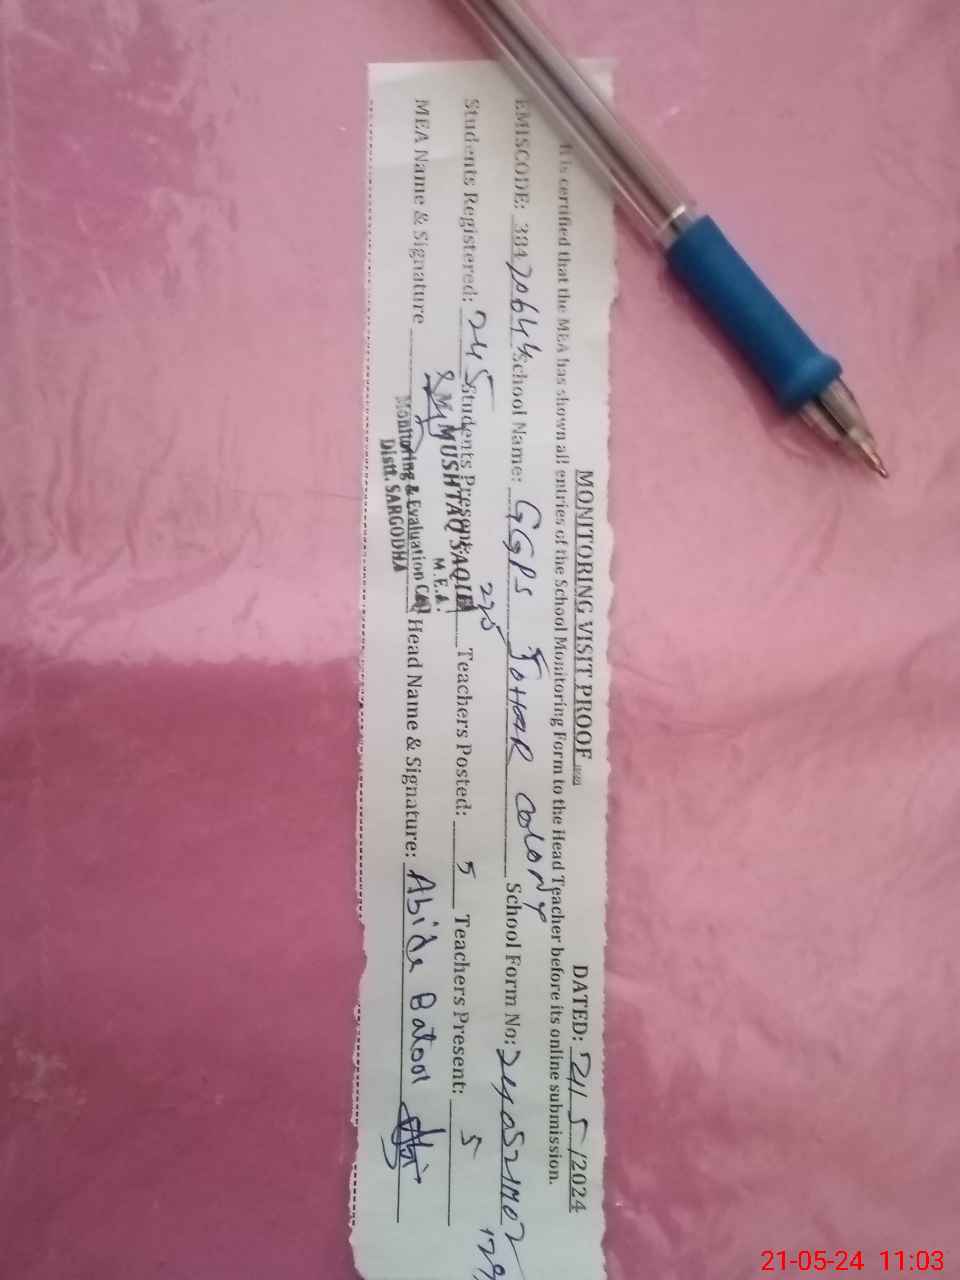 MONITORING VISIT PROOF DATED: 21/5/2024
It is certified that the MEA has shown all entries of the School Monitoring Form to the Head Teacher before its online submission.
EMISCODE: 38420644 School Name: GGPS JOHAR COLONY School Form No: 240521M02
Students Registered: 245 Students Present 225 Teachers Posted: 5 Teachers Present: 5
MUSHTAQ SAQIB
M.E.A.
MEA Name & Signature Head Name & Signature: Abida Batool
Monitoring & Evaluation Cell
Distt. SARGODHA
21-05-24 11:03